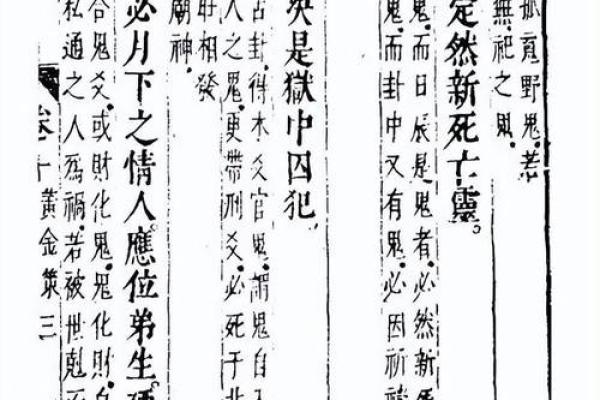 孤寃野鬼。若
無祀之鬼。
定然新死亡靈。
鬼。而日辰是鬼者。必然新
鬼。而卦中又有鬼。必因祈禱
是獄中囚犯。
占卦。得木爻官鬼。謂鬼自入
人之鬼。更帶刑爻。必死于
時相發
廟神。
必月下之情人。應位弟生。
合鬼爻。或財化鬼。鬼化財。
私通之人為禍。若被世剋
卷十 黃金策三